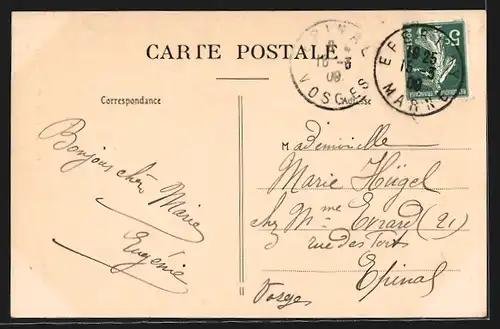 CARTE POSTALE
Correspondance
Adresse
EPINAL
10-3
09
VOSGES
EPERNAY
19 25
10-3
09
MARNE
5c
Bonjour chère Marie
Eugénie
Mademoiselle
Marie Hügel
chez Mme Evrard (21)
rue des Forts
Epinal
Vosges